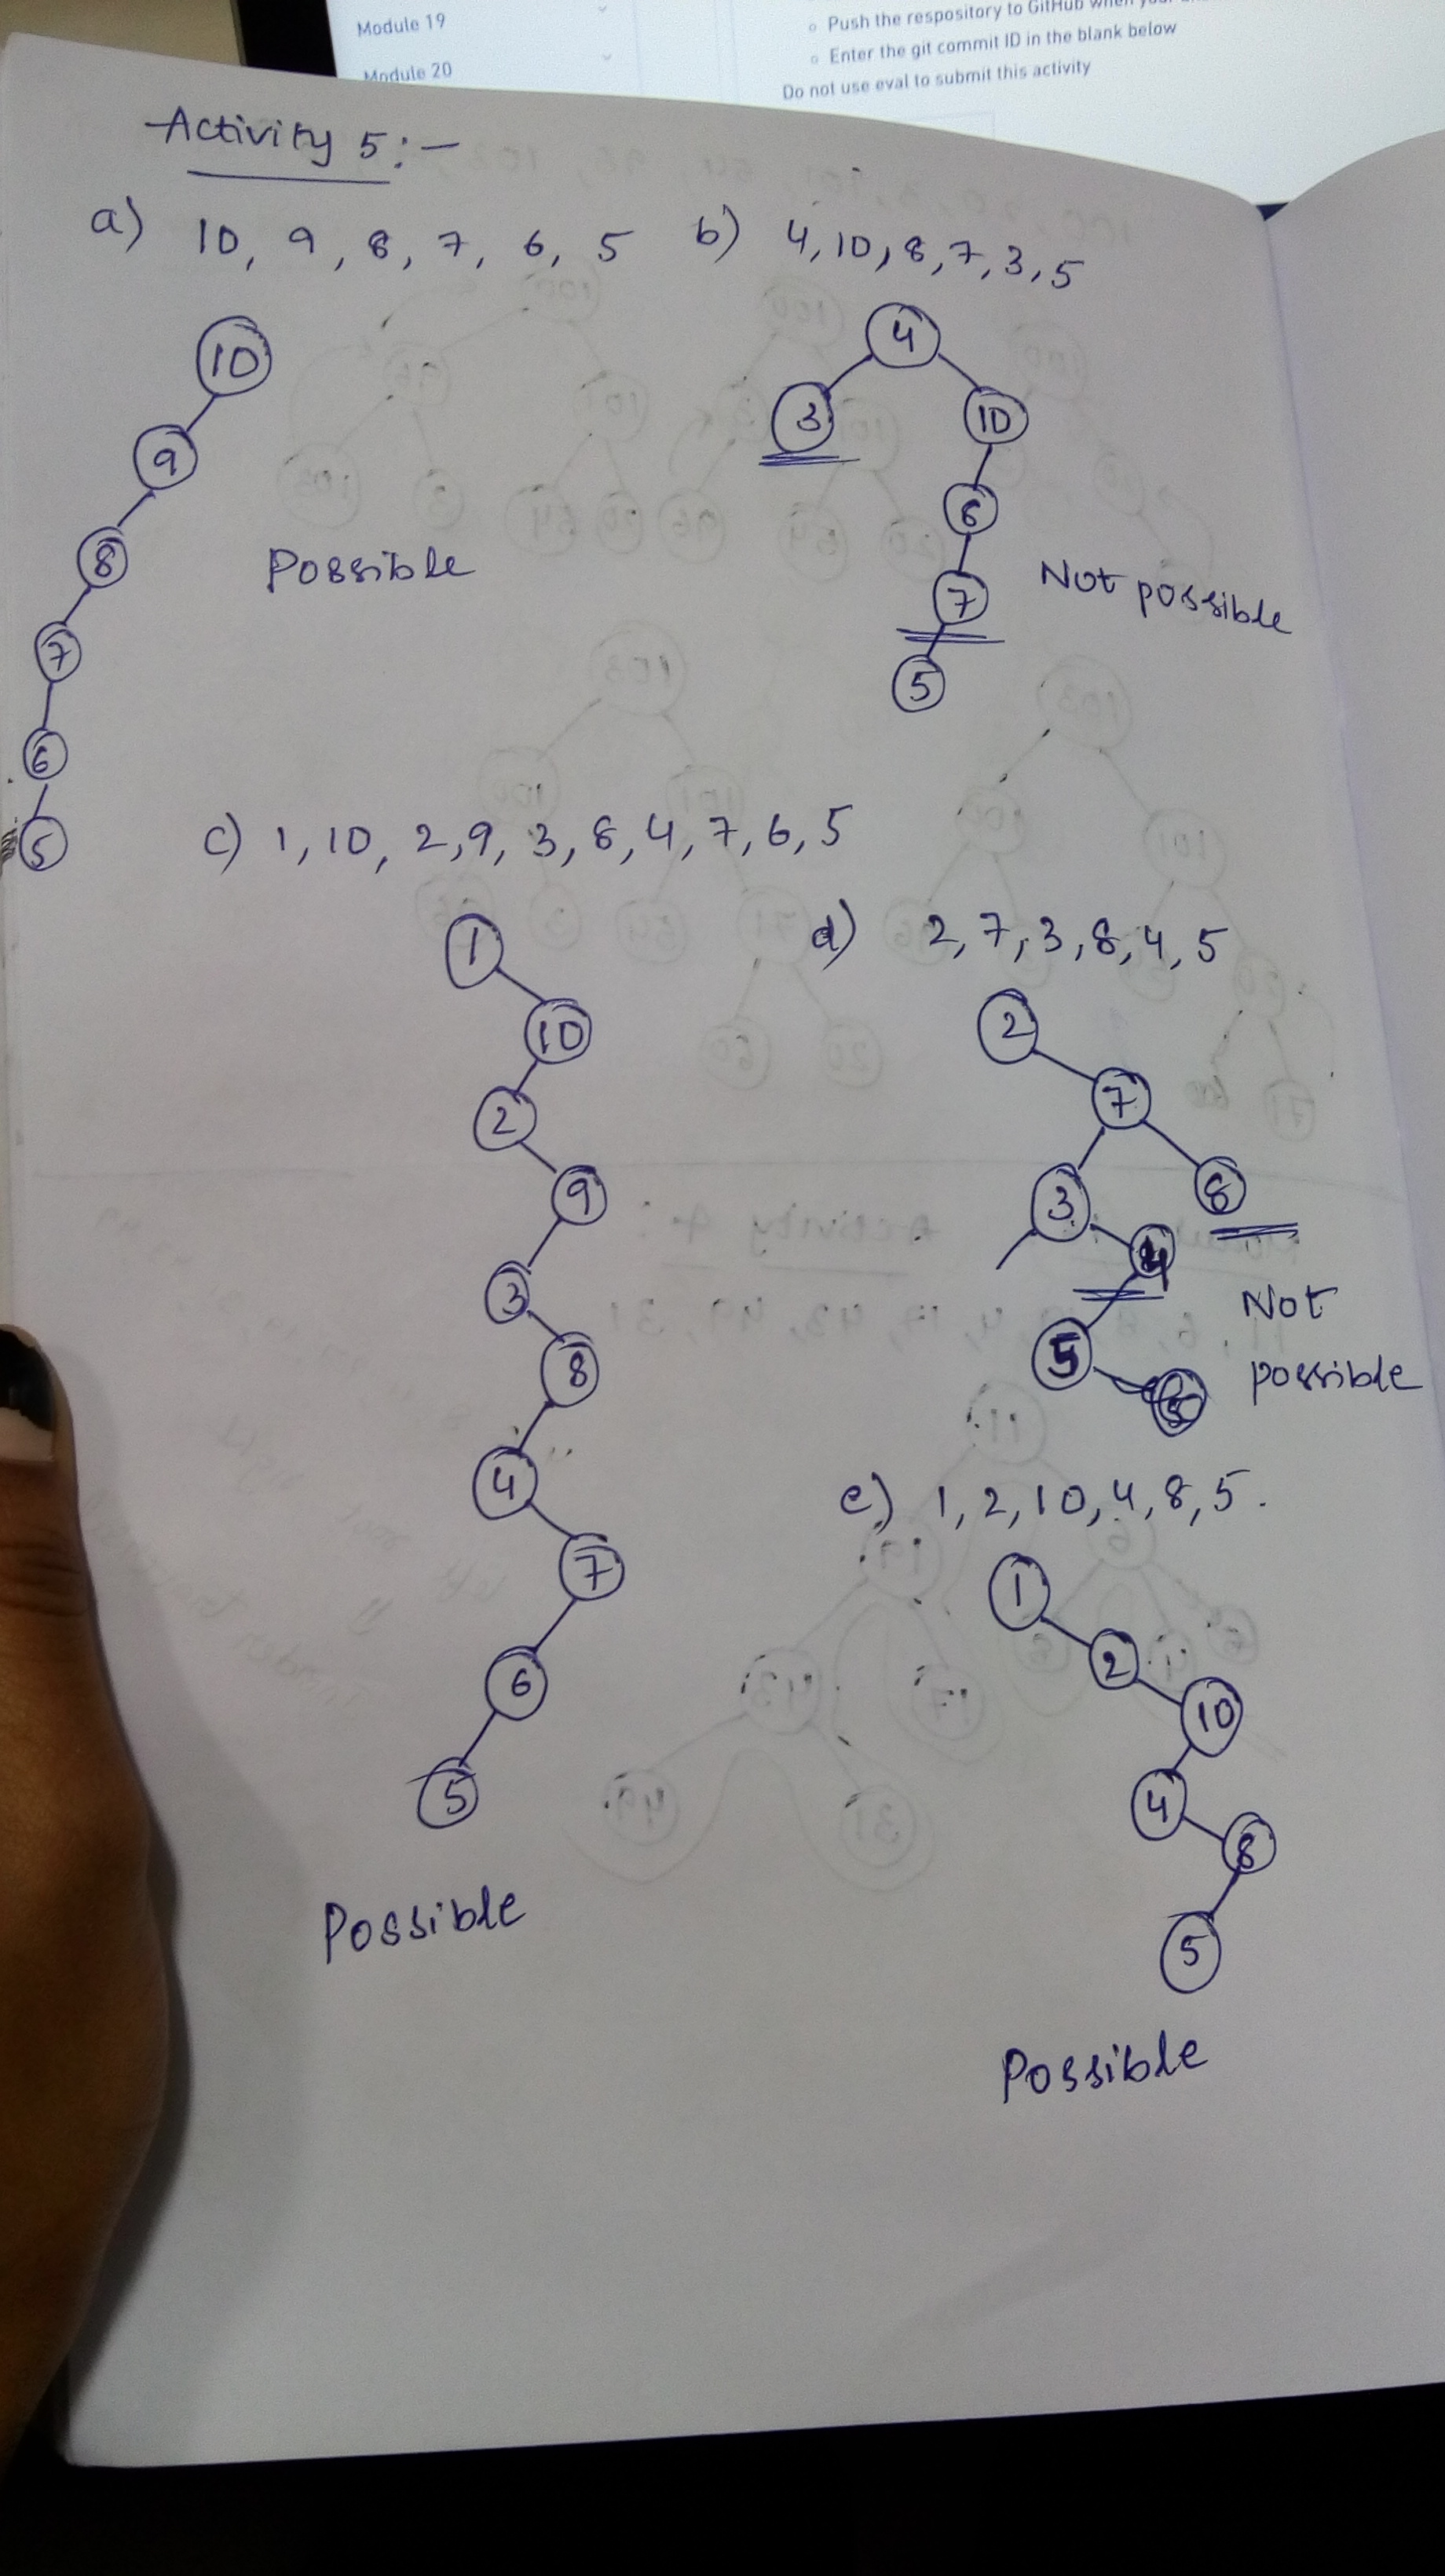 Module 19
Module 20
Push the respository to GitHub when
Enter the git commit ID in the blank below
Do not use eval to submit this activity
Activity 5:-
a) 10, 9, 8, 7, 6, 5
b) 4, 10, 8, 7, 3, 5
10
9
8
7
6
5
Possible
4
3
10
8
7
5
Not possible
c) 1, 10, 2, 9, 3, 8, 4, 7, 6, 5
1
10
2
9
3
8
4
7
6
5
Possible
d) 2, 7, 3, 8, 4, 5
2
7
3
8
4
5
Not
possible
e) 1, 2, 10, 4, 8, 5.
1
2
10
4
8
5
Possible